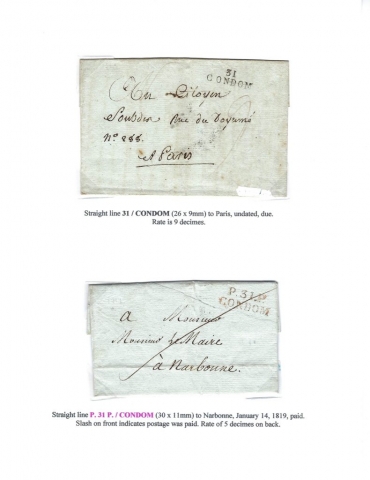 31
CONDOM
Au Citoyen
Rue du
N° 288.
A Paris
Straight line 31 / CONDOM (26 x 9mm) to Paris, undated, due.
Rate is 9 decimes.
P. 31 P.
CONDOM
a Monsieur
Monsieur le Maire
à Narbonne.
Straight line P. 31 P. / CONDOM (30 x 11mm) to Narbonne, January 14, 1819, paid.
Slash on front indicates postage was paid. Rate of 5 decimes on back.